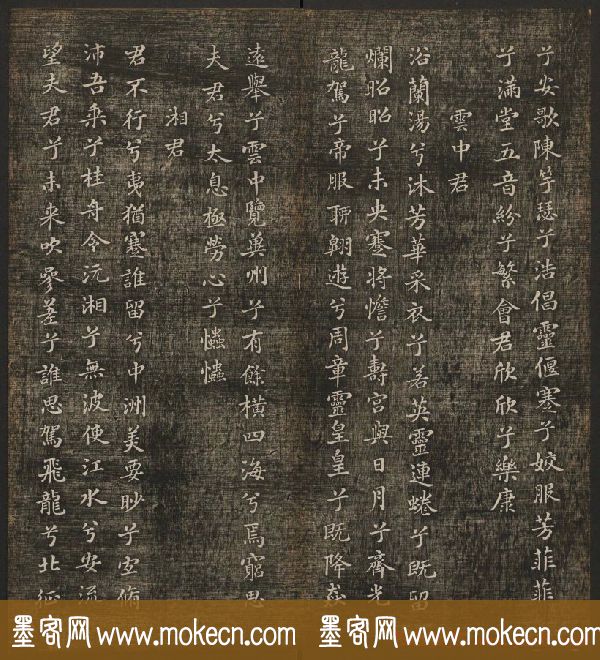 兮安歌陳竽瑟兮浩倡靈偃蹇兮姣服芳菲菲
兮滿堂五音紛兮繁會君欣欣兮樂康
雲中君
浴蘭湯兮沐芳華采衣兮若英靈連蜷兮既留
爛昭昭兮未央蹇將憺兮壽宮與日月兮齊光
龍駕兮帝服聊翱遊兮周章靈皇皇兮既降猋
遠舉兮雲中覽冀州兮有餘橫四海兮焉窮思
夫君兮太息極勞心兮𢥞𢥞
湘君
君不行兮夷猶蹇誰留兮中洲美要眇兮宜脩
沛吾乘兮桂舟令沅湘兮無波使江水兮安流
望夫君兮未來吹參差兮誰思駕飛龍兮北征
墨客网 www.mokecn.com 墨客网 www.mokecn.com